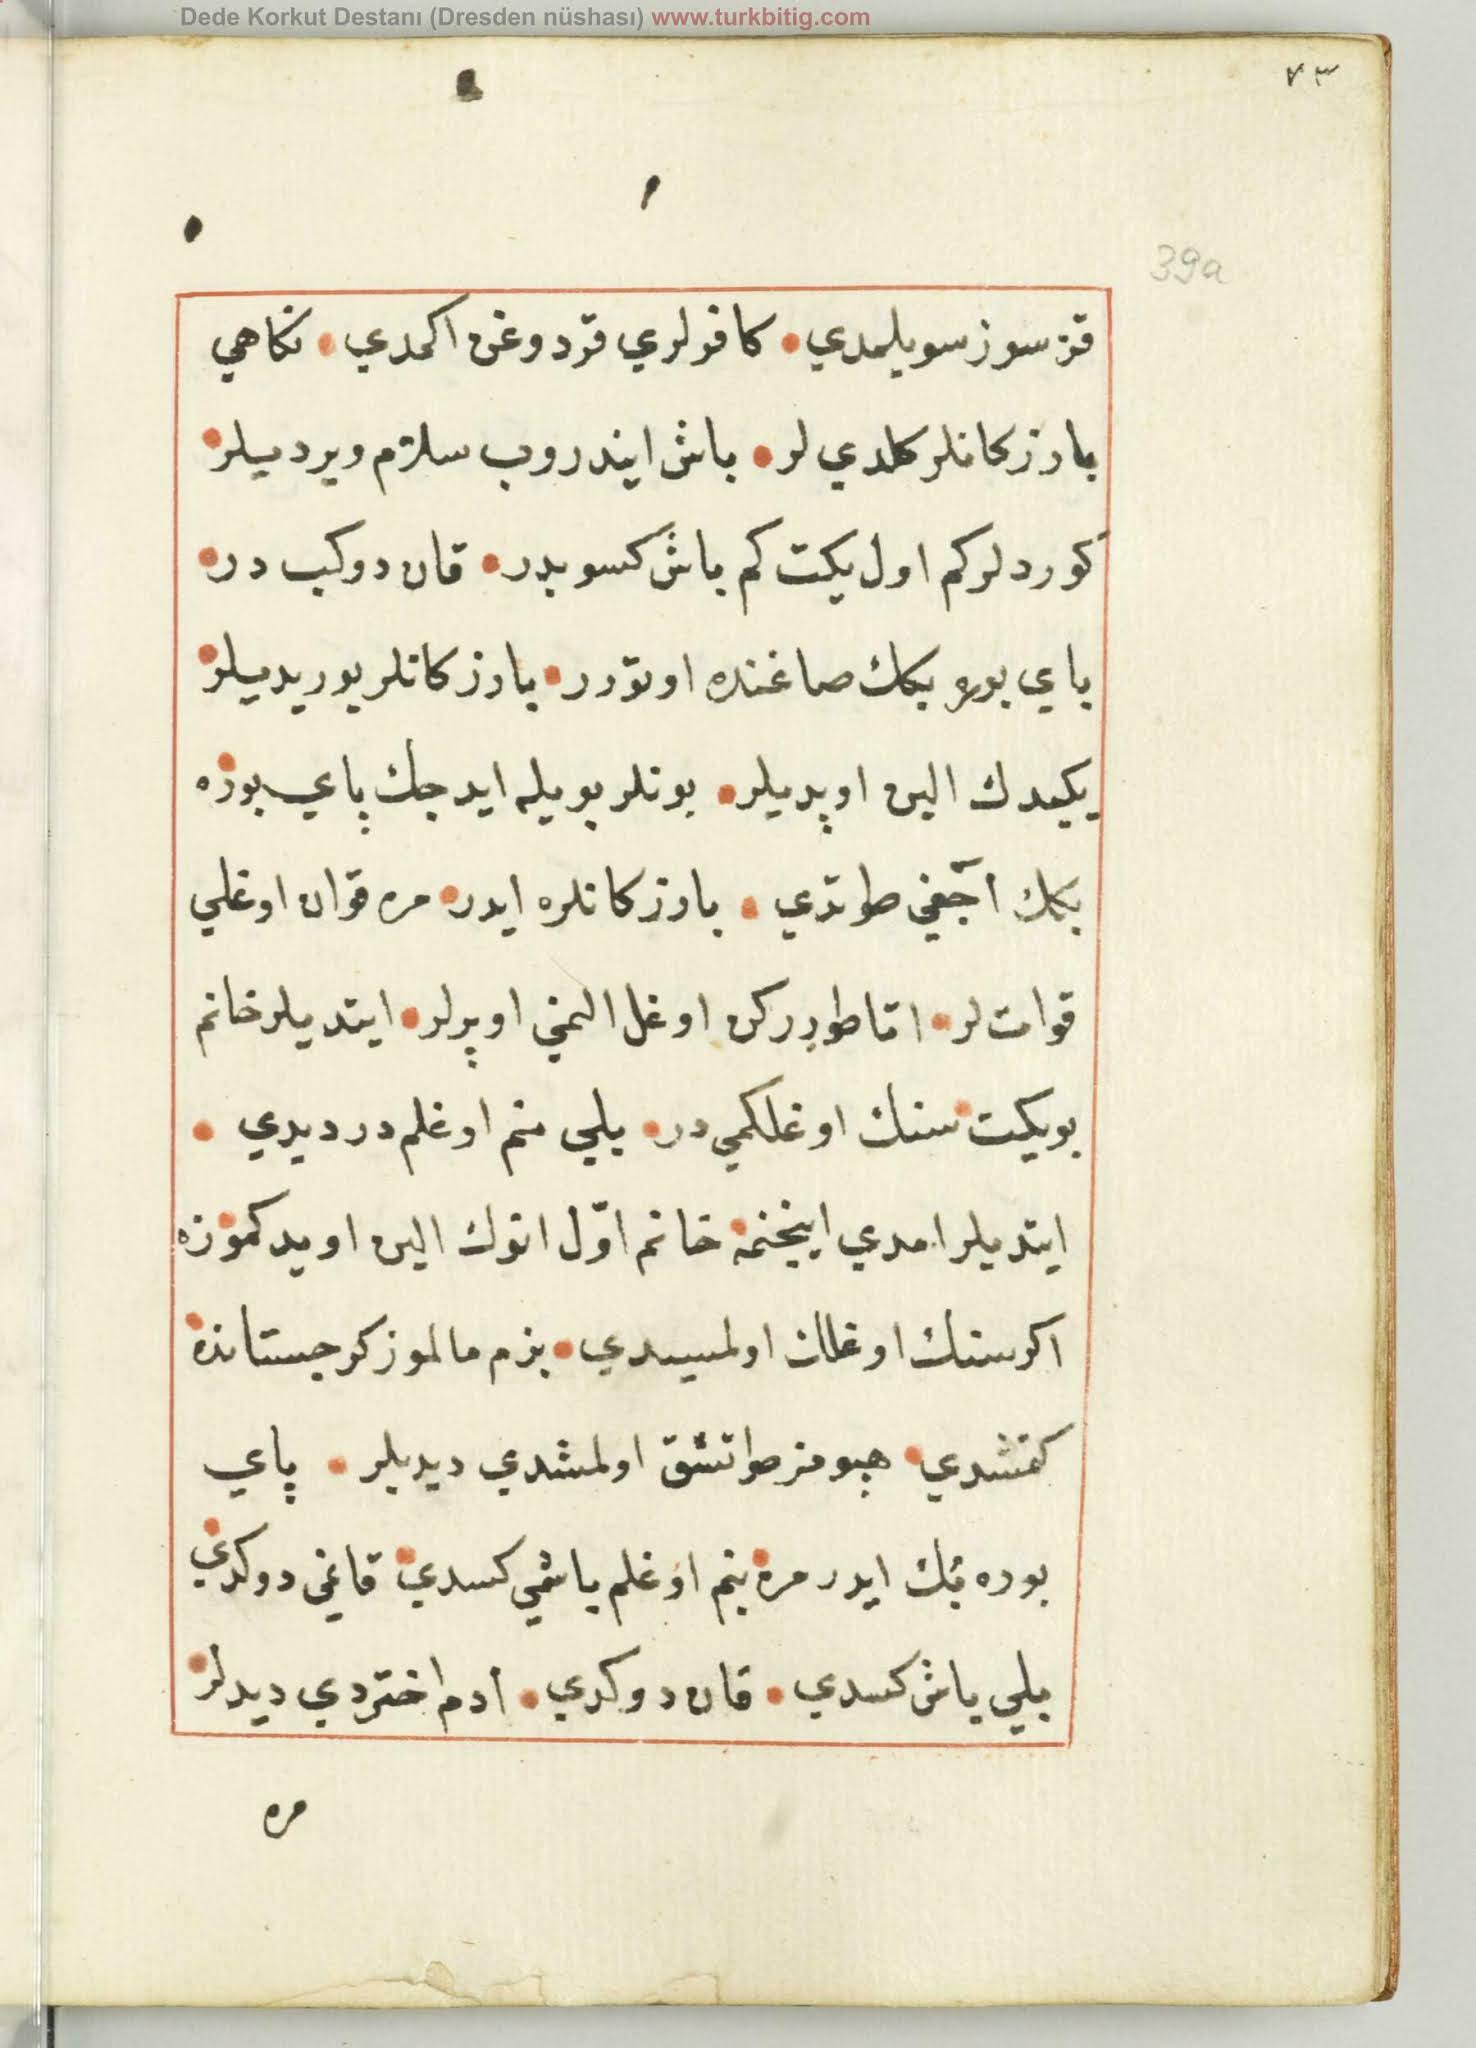 Dede Korkut Destanı (Dresden nüshası) www.turkbitig.com
٧٣
39a
قز سوز سويلمدي كافرلري قرد وغن اكمدي نكاهي
بازركانلر كلدي لر باش ايندروب سلام ويرديلر
كوردلركم اول يكت كم باش كسوبدر قان دوكب در
باي بوره بكك صاغنده اوتورر بازركانلر يوريديلر
يكيدك الين اوپديلر بونلر بويله ايدجك پاي بوره
بكك آچغي طوتدي بازركانلره ايدر مره قوات اوغلي
قوات لر اتا طورركن اوغل المني اوپرلر ايتديلر خانم
بو يكت سنك اوغلكمي در بلي منم اوغلم در ديدي
ايتديلر امدي اينجنمه خانم اوّل انوك الين اوپدكموزه
اكر سنك اوغلك اولمسيدي بزم مالموز كورجستانده
كتمشدي هپومز طوتسق اولمشدي ديديلر پاي
بوره بك ايدر مره بنم اوغلم باشمي كسدي قانمي دوكدي
بلي باش كسدي قان دوكدي آدم اختردي ديدلر
مره